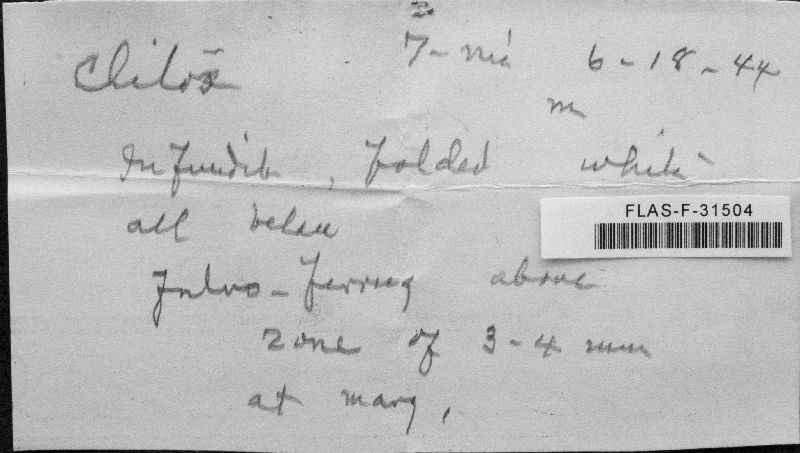 7-mi 6-18-44
m
Infundib, folded white
FLAS-F-31504
all below
Fulvo-ferrug above
zone of 3-4 mm
at marg,